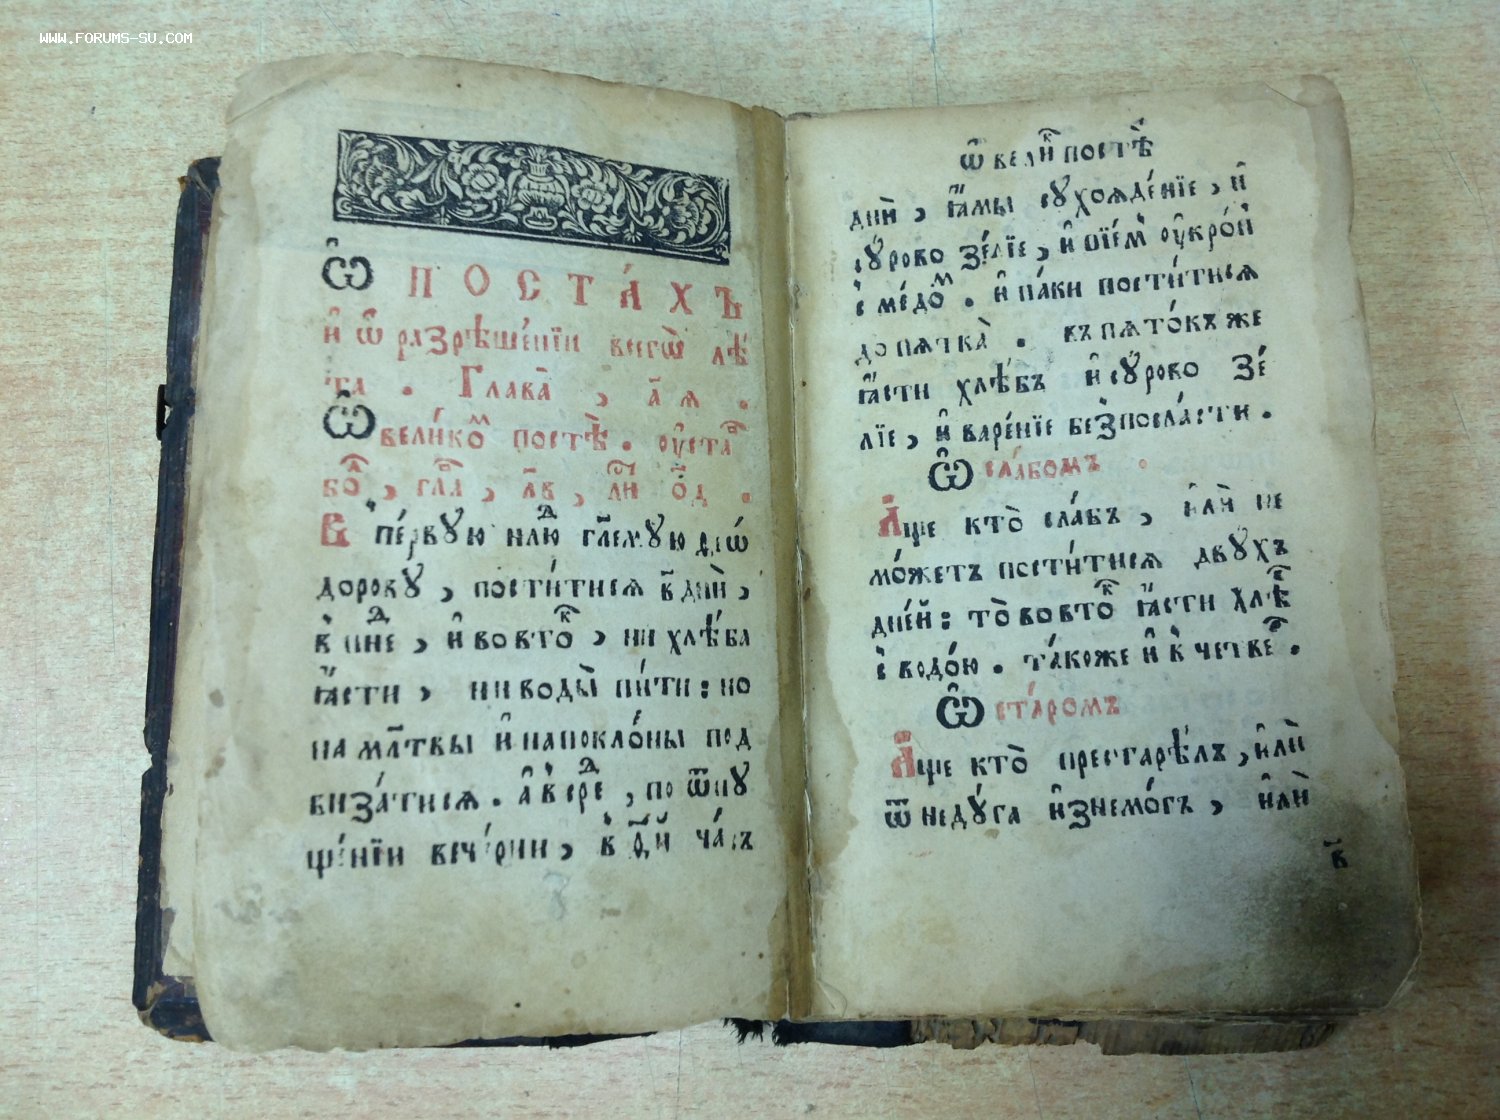 WWW.FORUMS-SU.COM
Ѽ ПОСТА́ХЪ
и҆ ѡ҆ разрѣше́нїи всегѡ̀ лѣ́
та . Глава̀ , а҃ѧ .
Ѽ вели́коⷨ постѣ̀ . ᲂу҆стаⷡ҇
воⷧ҇ , гл҃а , л҃в ,
В пе́рвꙋю нлⷣю гл҃емꙋю ѳео́
дорокꙋ , пости́тисѧ в҃ дни̑ ,
в̾ пнⷣе , и҆ во втоⷬ҇ , ни хлѣ́ба
ꙗ҆́сти , ни воды̀ пи́ти : но
на мл҃твы и҆ на покло́ны под
виза́тисѧ . а҆ в̾ среⷣ , по ѿпꙋ
ще́нїи вече́рни , в̾ ча́съ
Ѽ велиⷦ҇ постѣ̀
дни̑ , ꙗ҆́мы сꙋхоѧде́нїе , и҆
сꙋ́рово зе́лїе , и҆ пїе́м ᲂу҆кро́п
с̾ ме́доⷨ . и҆ па́ки пости́тисѧ
до пѧтка̀ . въ пѧто́къ же
ꙗ҆́сти хлѣ́бъ и҆ сꙋ́рово зе́
лїе , и҆ варе́нїе без̾ посла́сти .
Ѽ сла́бомъ .
А҆́ще кто̀ слабъ , и҆лѝ не
мо́жетъ пости́тисѧ двꙋ́хъ
дне́й : то̀ во втоⷦ҇ ꙗ҆́сти хлѣⷠ҇
с̾ водо́ю . та́коже и҆ в̾ четвеⷬ҇ .
Ѽ ста́ромъ
А҆́ще кто̀ престарѣ́лъ , и҆лѝ
ѿ недꙋ́га и҆знемо́гъ , и҆лѝ
в҃